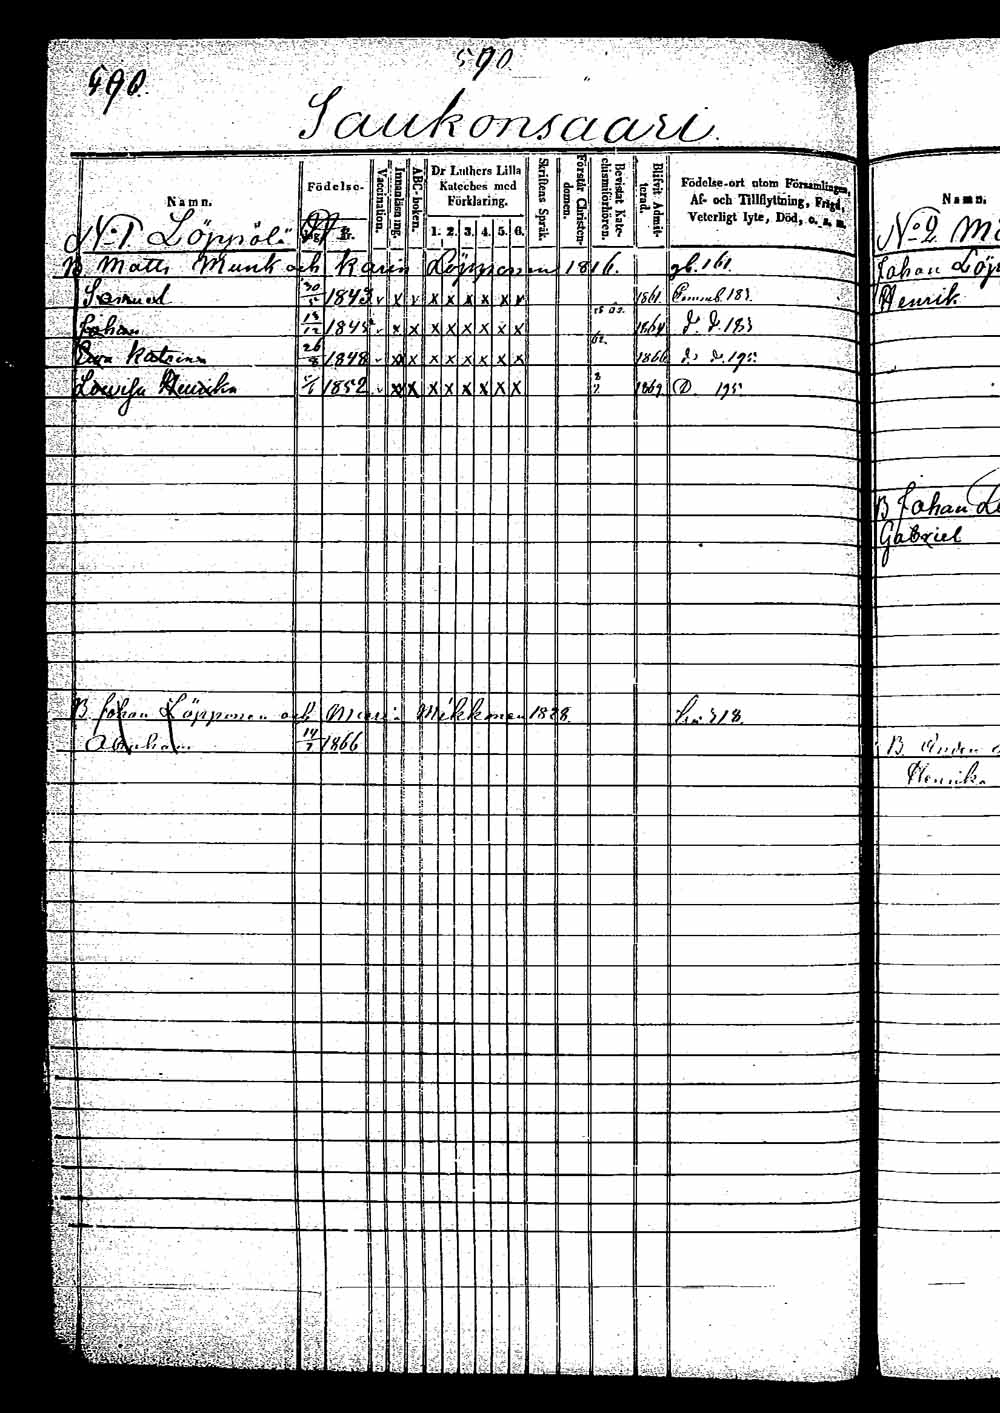 590.
590.
Saukonsaari.
Namn.
Födelse-
Vaccination.
Innanläsning.
ABC-boken.
Dr Luthers Lilla Kateches med Förklaring.
1. 2. 3. 4. 5. 6.
Skriftens Språk.
Förstår Christendomen.
Bevistat Katechismiförhören.
Blifvit Admitterad.
Födelse-ort utom Församlingen, Af- och Tillflyttning, Frigd, Veterligt lyte, Död, o. s. m.
No 1 Löppölä
B Matts Munk och Karin Löpponen 1816. gb. 161.
Samuel 30 1843 v x v x x x x x x 1861 183.
Johan 1845 v x x x x x x x x 1864 183
Ewa Katrina 26 1848 v x x x x x x x x 1866 195
Lowisa Henrika 1852 v x x x x x x x x 1869 D. 195
B. Johan Löpponen och Maria Mikkonen 1828. 318.
Abraham 14 1866
Namn.
No 2
Johan
Henrik
B Johan
Gabriel
B
Henrika